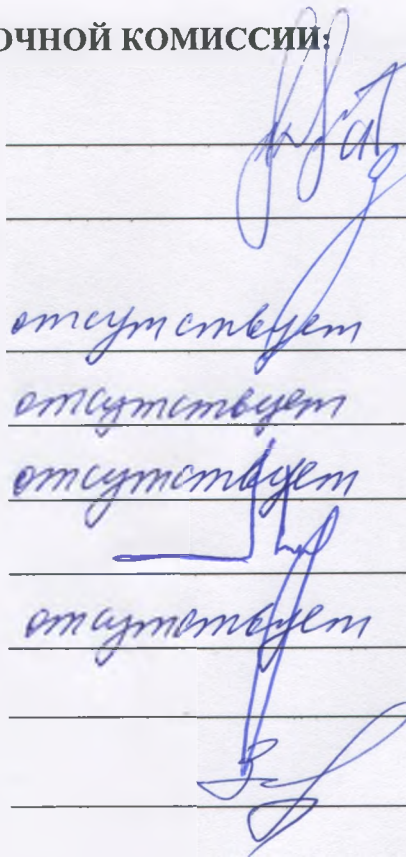 ОЧНОЙ КОМИССИИ:
отсутствует
отсутствует
отсутствует
отсутствует